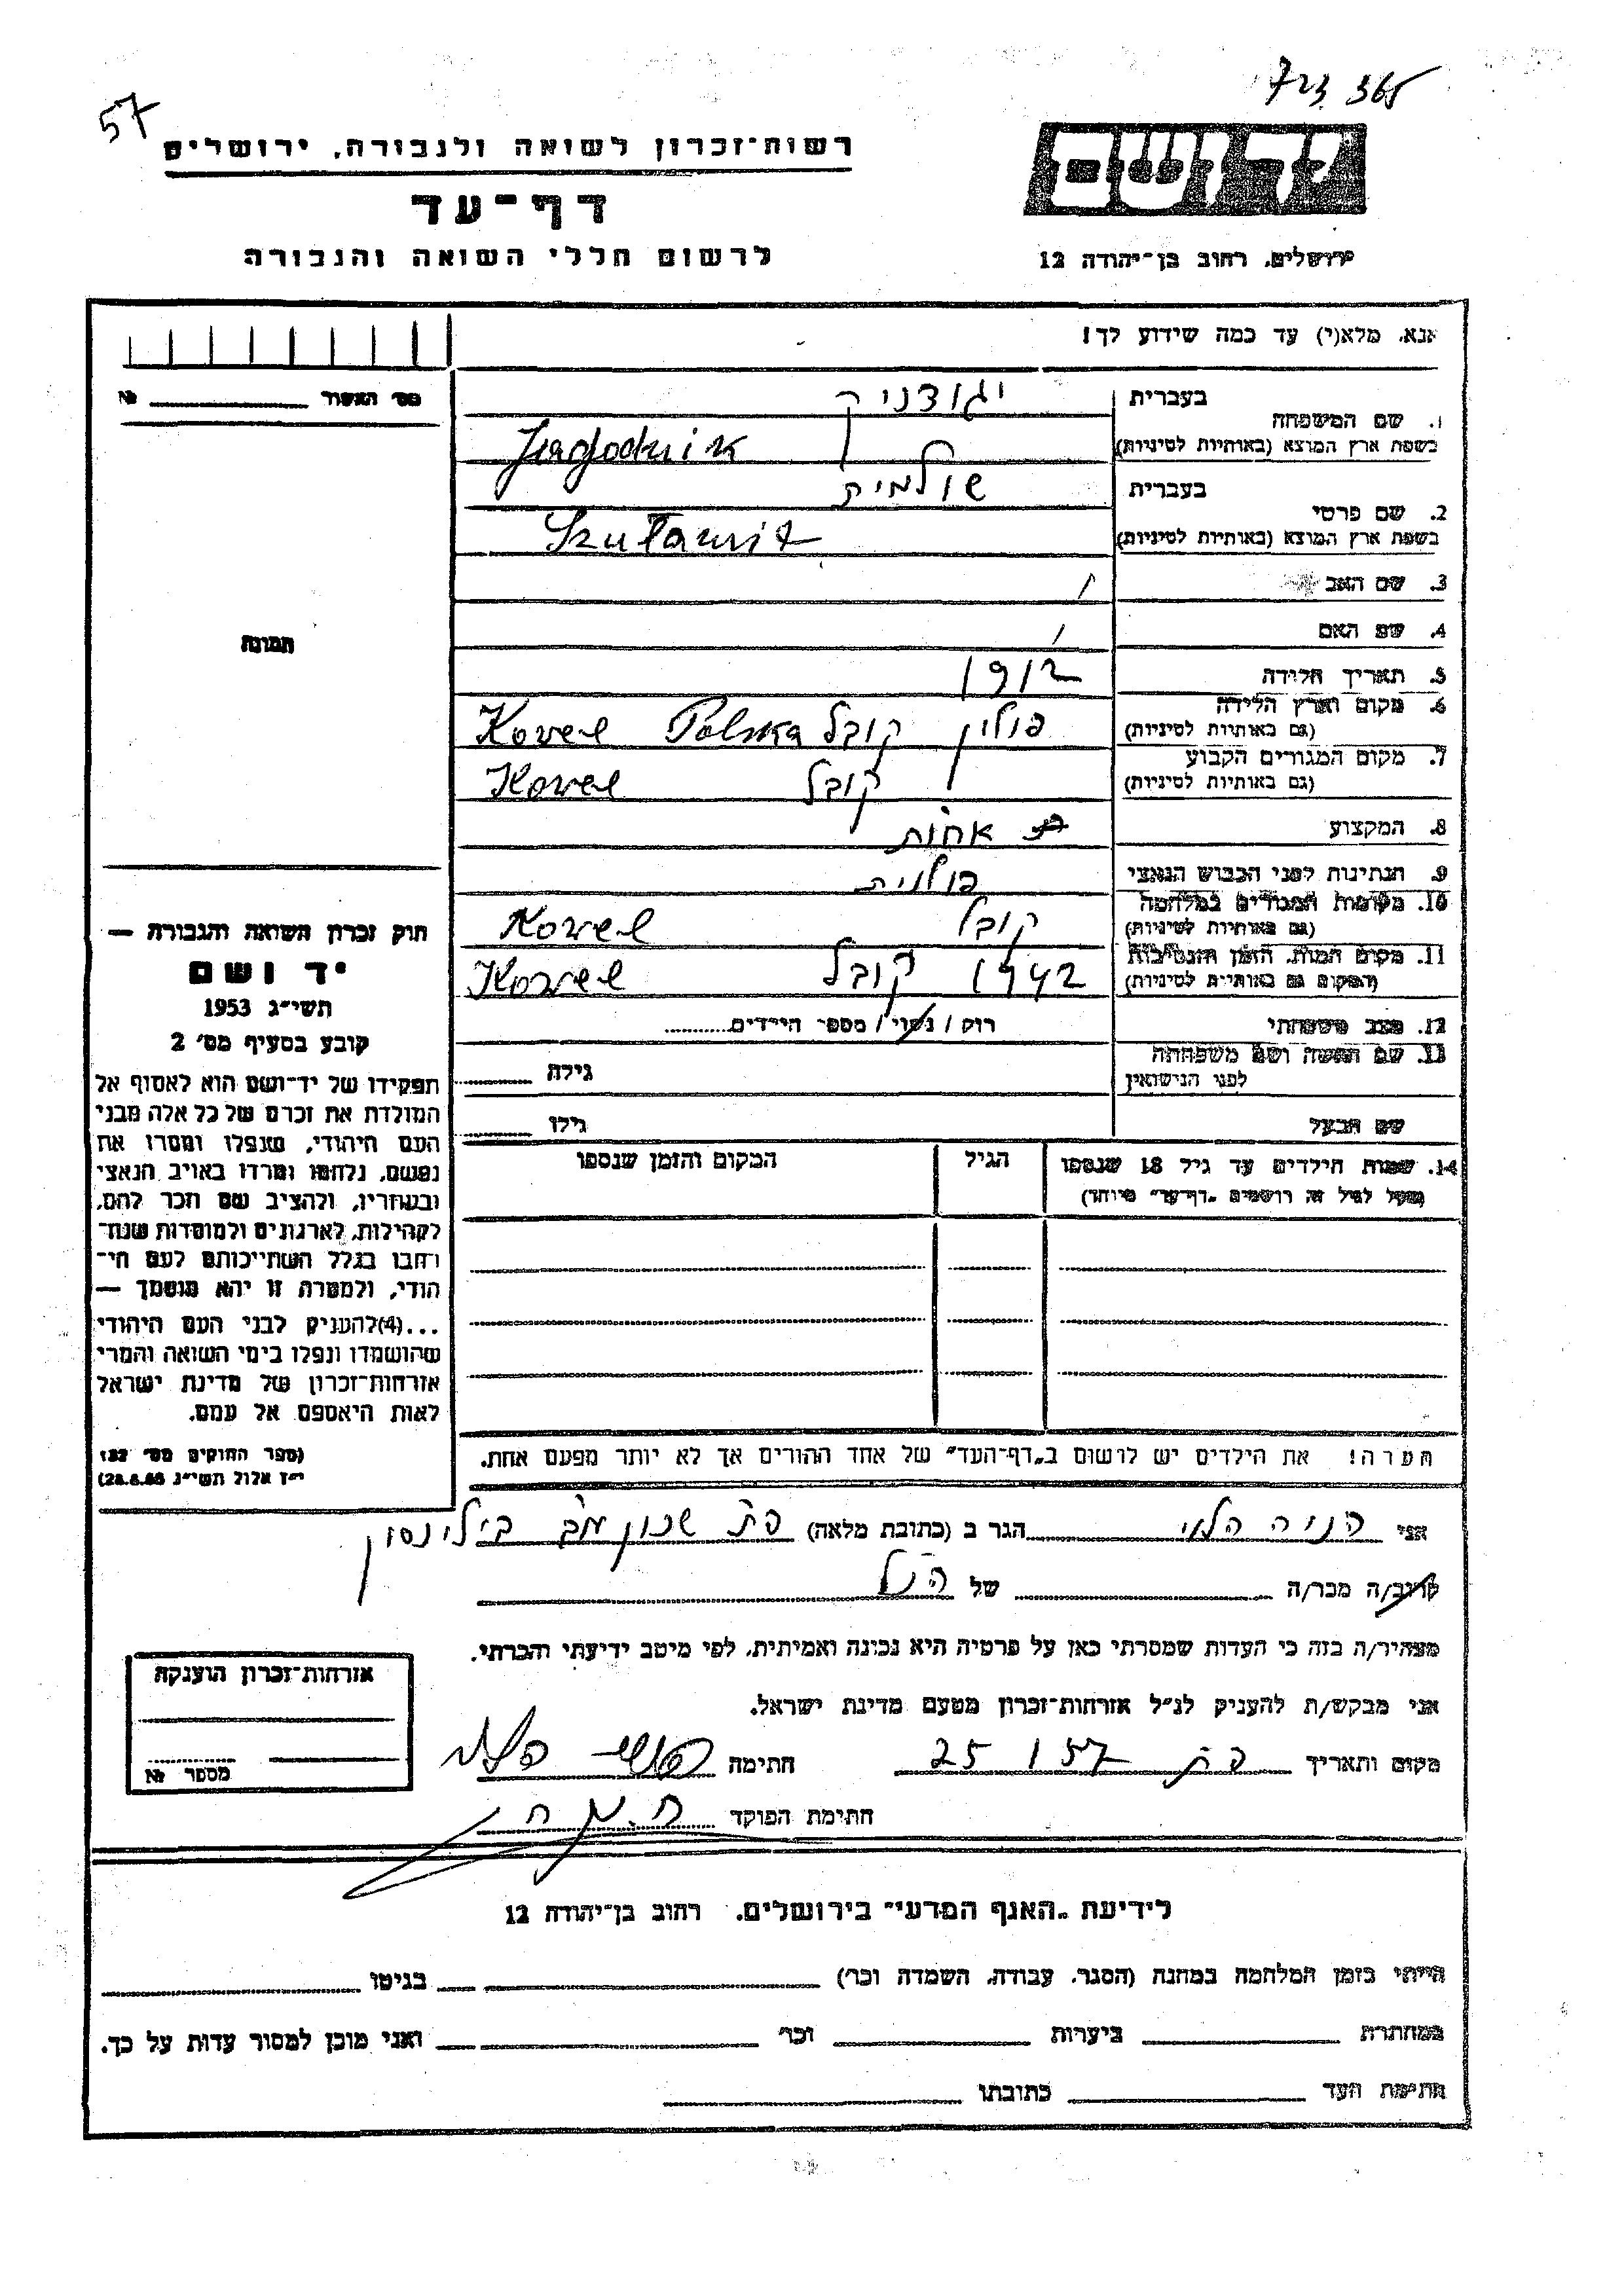 57
723 365
רשות־זכרון לשואה ולגבורה, ירושלים
דף־עד
לרשום חללי השואה והגבורה
יד ושם
ירושלים, רחוב בן־יהודה 12
אנא, מלא(י) עד כמה שידוע לך!
מס׳ האשור № 
1. שם המשפחה
בעברית יגודניק
בשפת ארץ המוצא (באותיות לטיניות) Jagodnik
2. שם פרטי
בעברית שולמית
בשפת ארץ המוצא (באותיות לטיניות) Szulamit
3. שם האב /
4. שם האם /
תמונה
5. תאריך הלידה 1912
6. מקום וארץ הלידה
(גם באותיות לטיניות) פולין קובל Polska Kovel
7. מקום המגורים הקבוע
(גם באותיות לטיניות) קובל Kovel
8. המקצוע אחות
9. הנתינות לפני הכבוש הנאצי פולנית
10. מקומות המגורים במלחמה
(גם באותיות לטיניות) קובל Kowel
11. מקום המות, הזמן והנסיבות
(המקום גם באותיות לטיניות) 1942 קובל Kovel
12. מצב משפחתי רווק / נשוי / מספר הילדים
13. שם האשה ושם משפחתה
לפני הנישואין גילה
שם הבעל גילו
14. שמות הילדים עד גיל 18 שנספו הגיל המקום והזמן שנספו
(מעל לגיל זה רושמים „דף־עד״ מיוחד)
הערה! את הילדים יש לרשום ב„דף־העד״ של אחד ההורים אך לא יותר מפעם אחת.
חוק זכרון השואה והגבורה —
יד ושם
תשי״ג 1953
קובע בסעיף מס׳ 2
תפקידו של יד־ושם הוא לאסוף אל
המולדת את זכרם של כל אלה מבני
העם היהודי, שנפלו ומסרו את
נפשם, נלחמו ומרדו באויב הנאצי
ובעוזריו, ולהציב שם וזכר להם,
לקהילות, לארגונים ולמוסדות שנח־
רחבו בגלל השתייכותם לעם הי־
הודי, ולמטרה זו יהא מוסמך —
...(4)להעניק לבני העם היהודי
שהושמדו ונפלו בימי השואה והמרי
אזרחות־זכרון של מדינת ישראל
לאות היאספם אל עמם.
(ספר החוקים מס׳ 132
י״ז אלול תשי״ג
אני הניה הלוי הגר ב (כתובת מלאה) פת שכון ביילינסון
קרוב/ה מכר/ה של הנ״ל
מצהיר/ה בזה כי העדות שמסרתי כאן על פרטיה היא נכונה ואמיתית, לפי מיטב ידיעתי והכרתי.
אני מבקש/ת להעניק לנ״ל אזרחות־זכרון מטעם מדינת ישראל.
מקום ותאריך פת 25 1 57 חתימה
חתימת הפוקד
אזרחות־זכרון הוענקה
מספר №
לידיעת „האגף המדעי״ בירושלים, רחוב בן־יהודה 12
הייתי בזמן המלחמה במחנה (הסגר, עבודה, השמדה וכו׳) בגיטו
במחתרת ביערות וכו׳ ואני מוכן למסור עדות על כך.
חתימת העד כתובתו